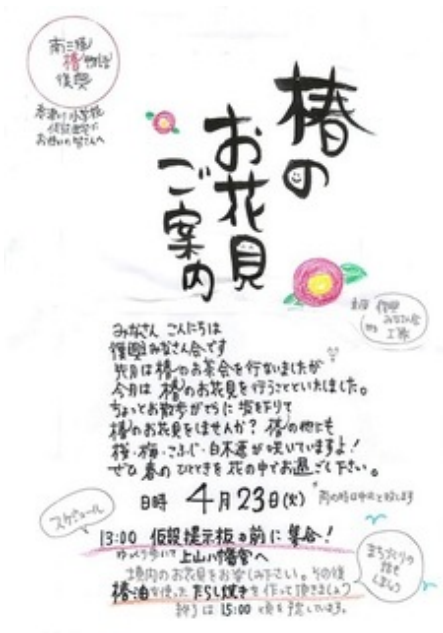 南三陸
椿物語
復興
志津川小学校
仮設住宅に
お住いの皆さんへ
椿の
お花見
ご案内
主催 復興
みなさん会
工藤
みなさん こんにちは
復興みなさん会です
先月は椿のお茶会を行ないましたが
今月は 椿のお花見を行うことといたしました。
ちょっとお散歩がてらに 坂を下りて
椿のお花見をしませんか? 椿の他にも
桜・梅・こぶし・白木蓮が咲いていますよ!
ぜひ 春のひとときを 花の中でお過ごし下さい。
日時 4月23日(火) 雨の時は中止と致します
スケジュール
13:00 仮設掲示板の前に集合!
ゆっくり歩いて 上山八幡宮へ
境内のお花見をお楽しみ下さい。その後
椿油を使ったたらし焼きを作って頂きましょう
終りは 15:00 頃を予定しています。
まちづくりの
話も
しましょう